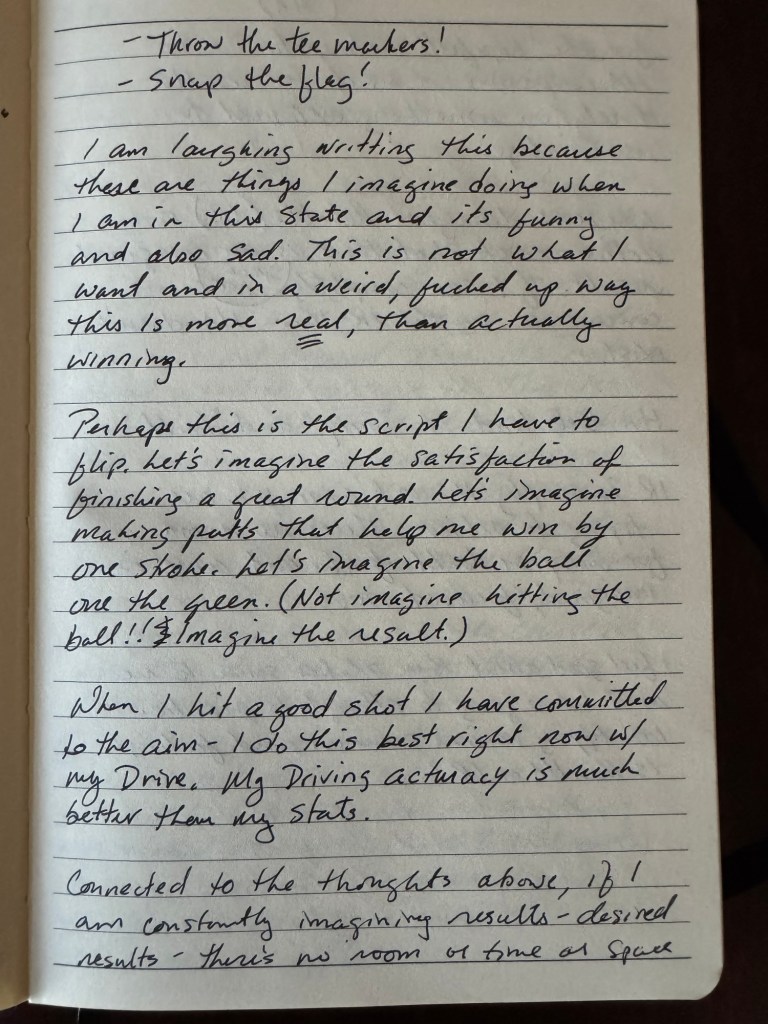 - Throw the tee markers!
- Snap the flag!
I am laughing writting this because
these are things I imagine doing when
I am in this state and its funny
and also sad. This is not what I
want and in a weird, fucked up way
this is more real, than actually
winning.
Perhaps this is the script I have to
flip. Let's imagine the satisfaction of
finishing a great round. Let's imagine
making putts that help me win by
one stroke. Let's imagine the ball
one the green. (Not imagine hitting the
ball!! Imagine the result.)
When I hit a good shot I have committed
to the aim - I do this best right now w/
my Drive. My Driving accuracy is much
better than my stats.
Connected to the thoughts above, if I
am constantly imagining results - desired
results - there's no room or time or space